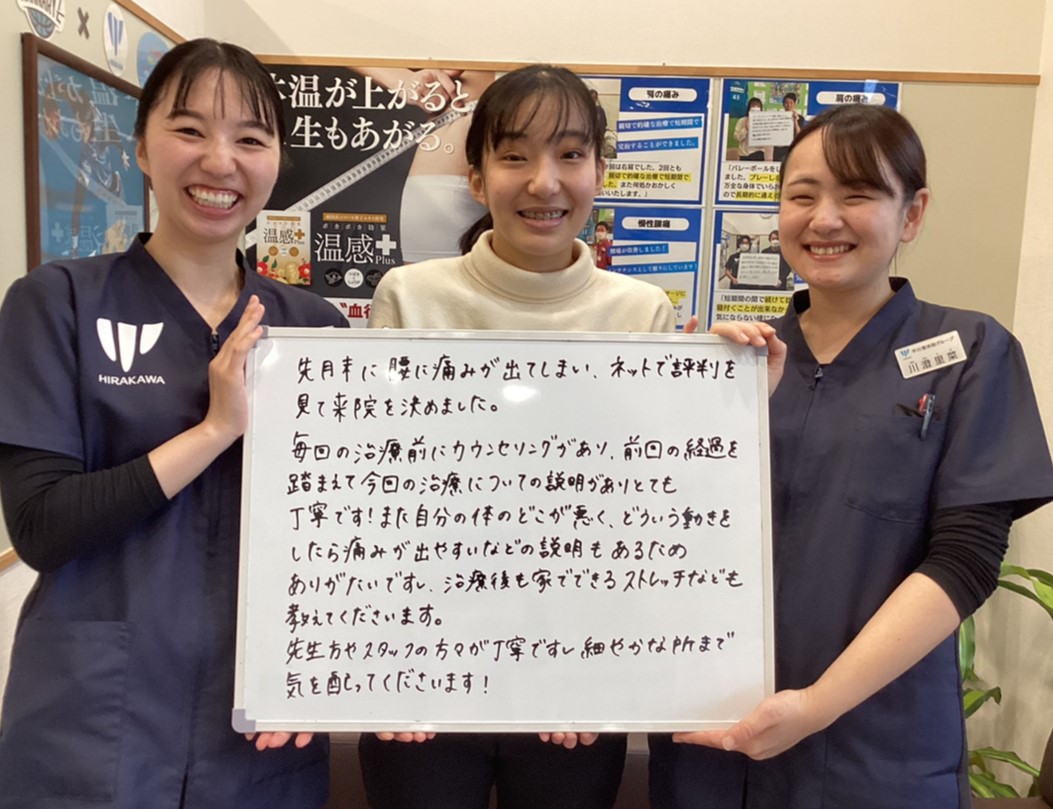 体温が上がると
生もあがる。
温感
Plus
温感
Plus
顎の痛み
親切で的確な治療で短期間で
完治することができました。
慢性腰痛
肩の痛み
HIRAKAWA
川澄里菜
先月末に腰に痛みが出てしまい、ネットで評判を
見て来院を決めました。
毎回の治療前にカウンセリングがあり、前回の経過を
踏まえて今回の治療についての説明がありとても
丁寧です!また自分の体のどこが悪く、どういう動きを
したら痛みが出やすいなどの説明もあるため
ありがたいですし、治療後も家でできるストレッチなども
教えてくださいます。
先生方やスタッフの方々が丁寧ですし細やかな所まで
気を配ってくださいます!